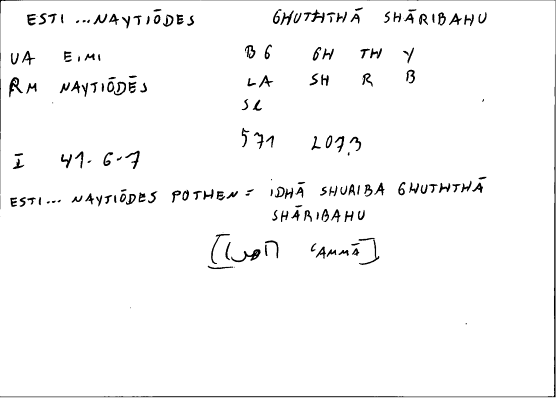 ESTI ... NAYTIŌDES GHUTHTHĀ SHĀRIBAHU
UA EIMI BG GH TH Y
RM NAYTIŌDĒS LA SH R B
SE
571 207.3
I 41-6-7
ESTI... NAYTIŌDES POTHEN = IDHĀ SHURIBA GHUTHTHĀ
SHĀRIBAHU
‘AMMĀ]